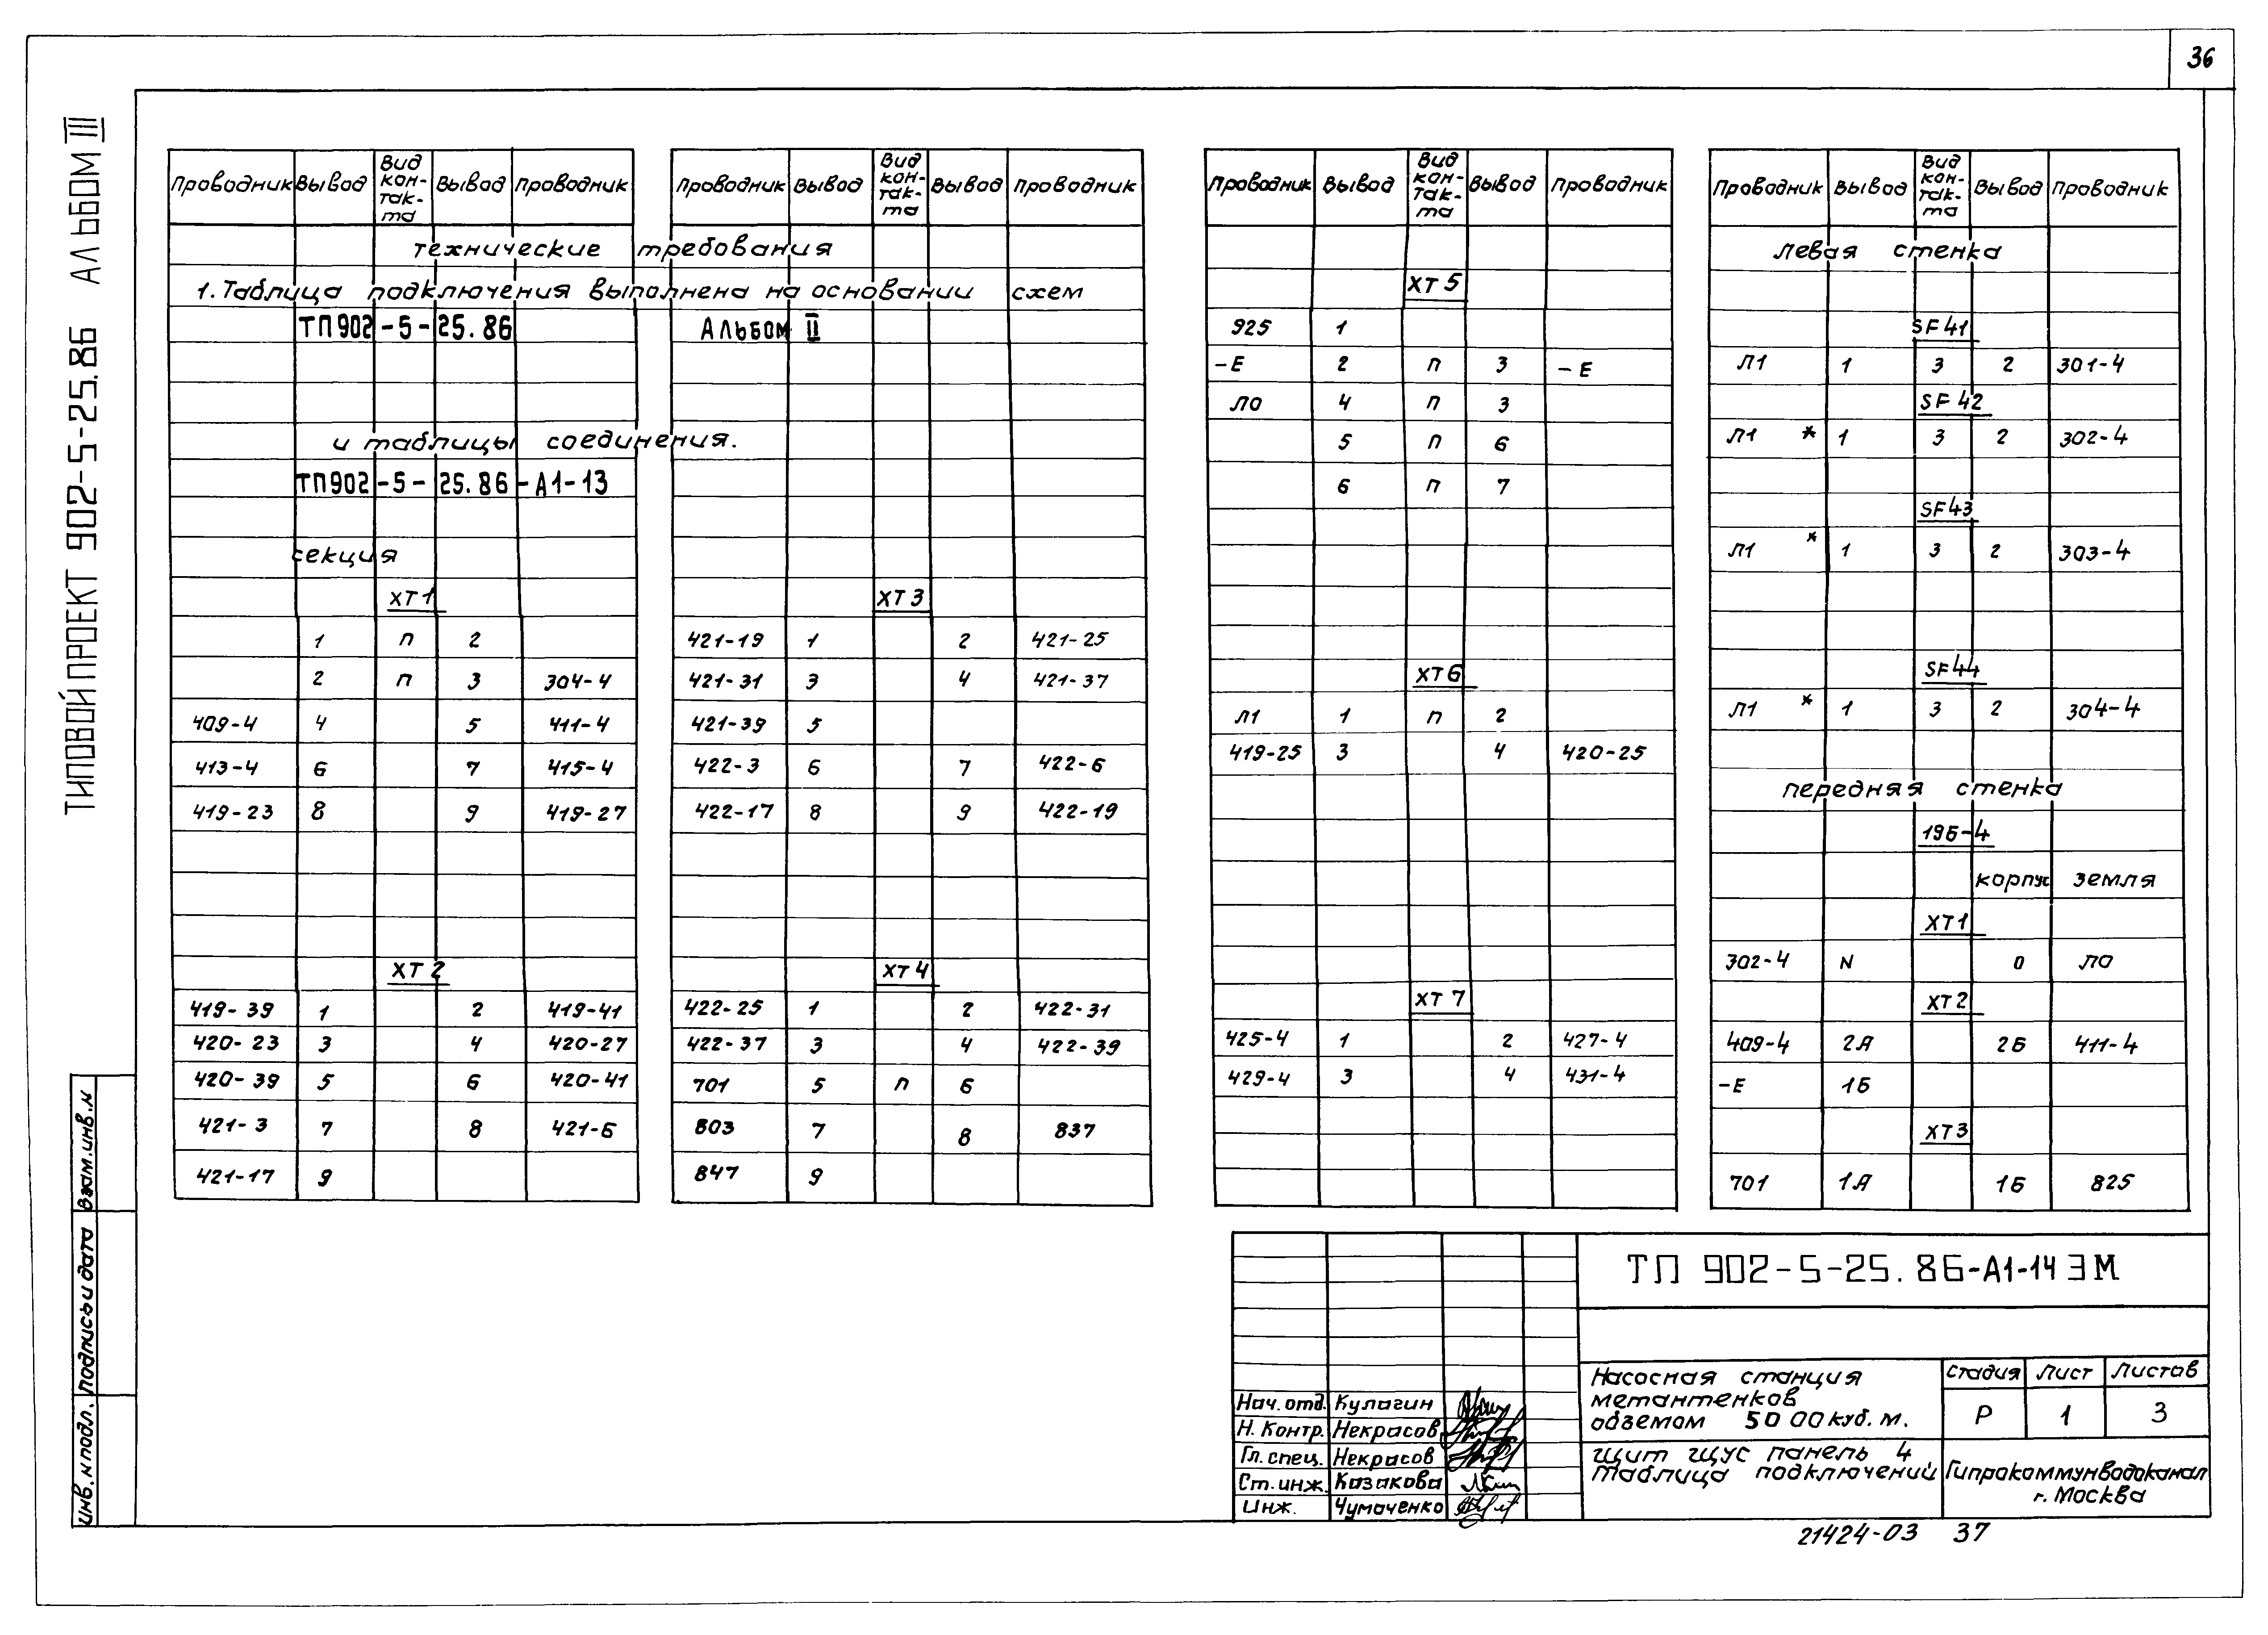 36
ТИПОВОЙ ПРОЕКТ 902-5-25.86 АЛЬБОМ III
Проводник Вывод Вид кон-так-та Вывод Проводник
технические требования
1. Таблица подключения выполнена на основании схем
ТП902-5-25.86 АЛЬБОМ II
и таблицы соединения.
ТП902-5-25.86-А1-13
секция
ХТ1
1 п 2
2 п 3 304-4
409-4 4 5 411-4
413-4 6 7 415-4
419-23 8 9 419-27
ХТ2
419-39 1 2 419-41
420-23 3 4 420-27
420-39 5 6 420-41
421-3 7 8 421-6
421-17 9
Проводник Вывод Вид кон-так-та Вывод Проводник
ХТ3
421-19 1 2 421-25
421-31 3 4 421-37
421-39 5
422-3 6 7 422-6
422-17 8 9 422-19
ХТ4
422-25 1 2 422-31
422-37 3 4 422-39
701 5 п 6
803 7 8 837
847 9
Проводник Вывод Вид кон-так-та Вывод Проводник
ХТ5
925 1
-Е 2 п 3 -Е
ЛО 4 п 3
5 п 6
6 п 7
ХТ6
Л1 1 п 2
419-25 3 4 420-25
ХТ7
425-4 1 2 427-4
429-4 3 4 431-4
Проводник Вывод Вид кон-так-та Вывод Проводник
левая стенка
SF41
Л1 1 3 2 301-4
SF42
Л1 * 1 3 2 302-4
SF43
Л1 * 1 3 2 303-4
SF44
Л1 * 1 3 2 304-4
передняя стенка
19Б-4
корпус земля
ХТ1
302-4 N 0 ЛО
ХТ2
409-4 2А 2Б 411-4
-Е 1Б
ХТ3
701 1А 1Б 825
ТП 902-5-25.86-А1-14 ЭМ
Насосная станция
метантенков
обземом 5000 куб. м.
Стадия Лист Листов
Р 1 3
Щит ЩУС панель 4
Таблица подключений
Гипрокоммунводоканал
г. Москва
Нач. отд. Кулагин
Н. Контр. Некрасов
Гл. спец. Некрасов
Ст. инж. Казакова
Инж. Чумаченко
Взам. инв. н
подпись и дата
инв. н подл.
21424-03 37